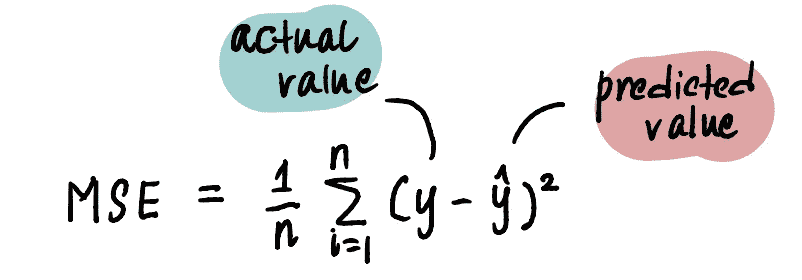 actual
value
predicted
value
MSE = 1/n n∑i=1 (y - ŷ)²